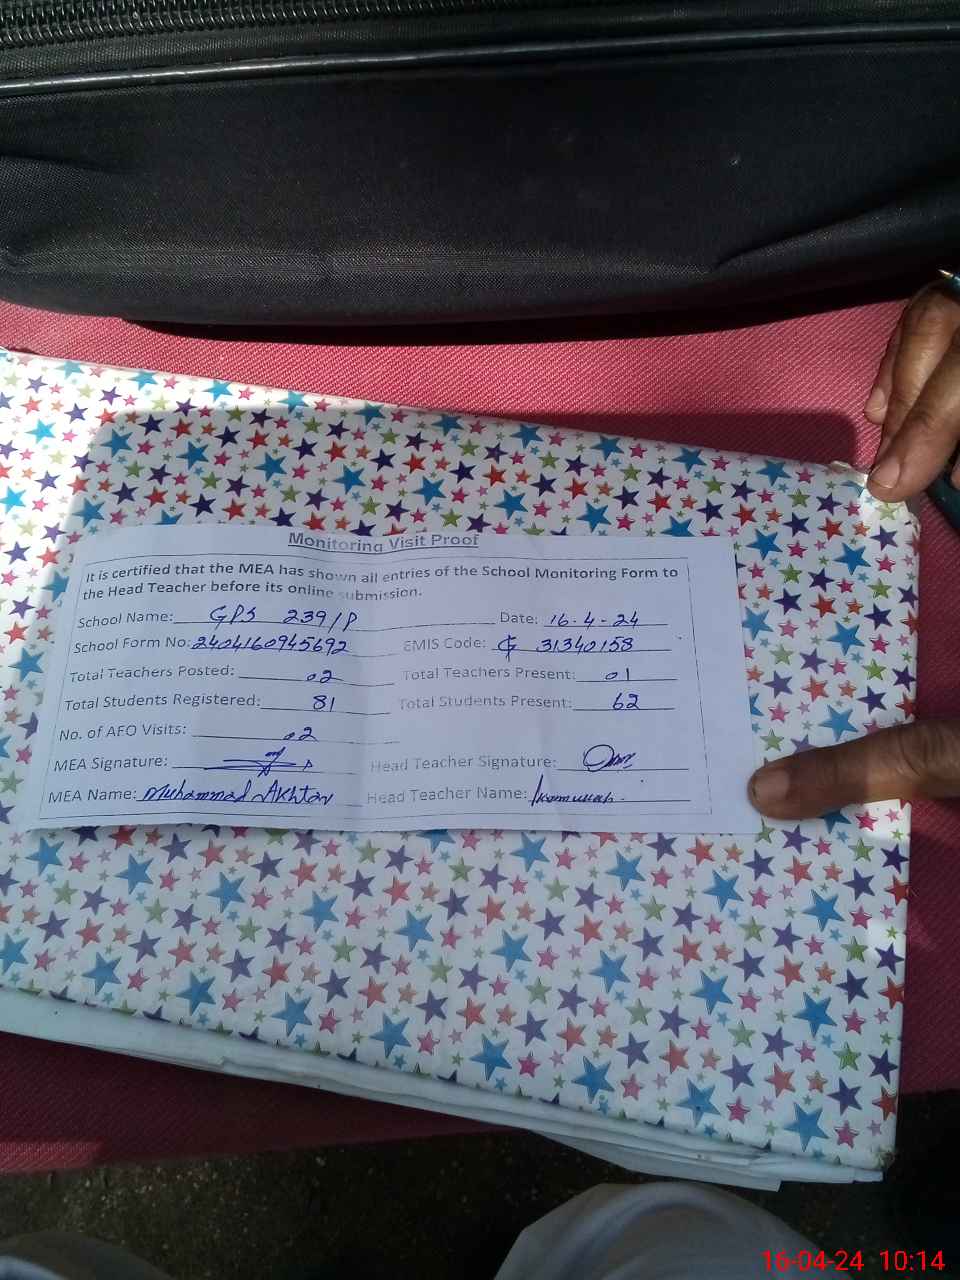 Monitoring Visit Proof
It is certified that the MEA has shown all entries of the School Monitoring Form to
the Head Teacher before its online submission.
School Name: GPS 239/P Date: 16-4-24
School Form No: 2404160945692 EMIS Code: 31340158
Total Teachers Posted: 02 Total Teachers Present: 01
Total Students Registered: 81 Total Students Present: 62
No. of AEO Visits: 02
MEA Signature: Head Teacher Signature:
MEA Name: Muhammad Akhtar Head Teacher Name:
16-04-24 10:14